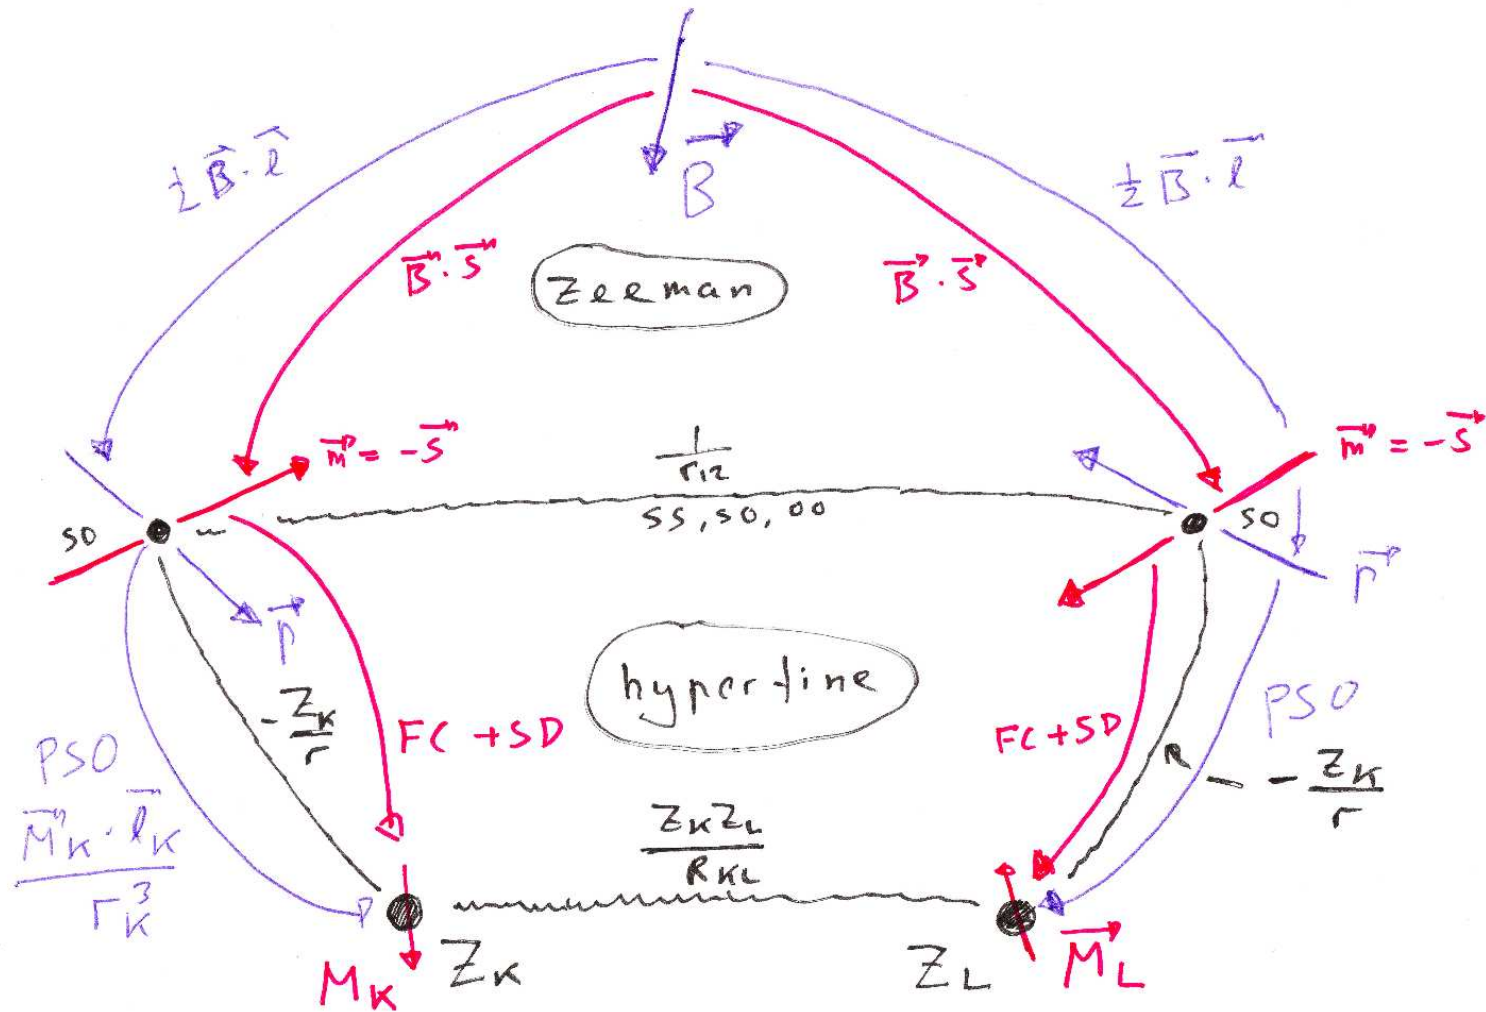 ½ B⃗·l⃗
½ B⃗·l⃗
B⃗
B⃗·s⃗
B⃗·s⃗
Zeeman
m⃗ = -s⃗
1/r₁₂
m⃗ = -s⃗
SS, SO, OO
SO
SO
p⃗
p⃗
hyperfine
-Z_K/r
FC + SD
FC + SD
PSO
PSO
- Z_K/r
M⃗_K·l⃗_K/r_K³
Z_K Z_L/R_KL
M_K
Z_K
Z_L
M⃗_L